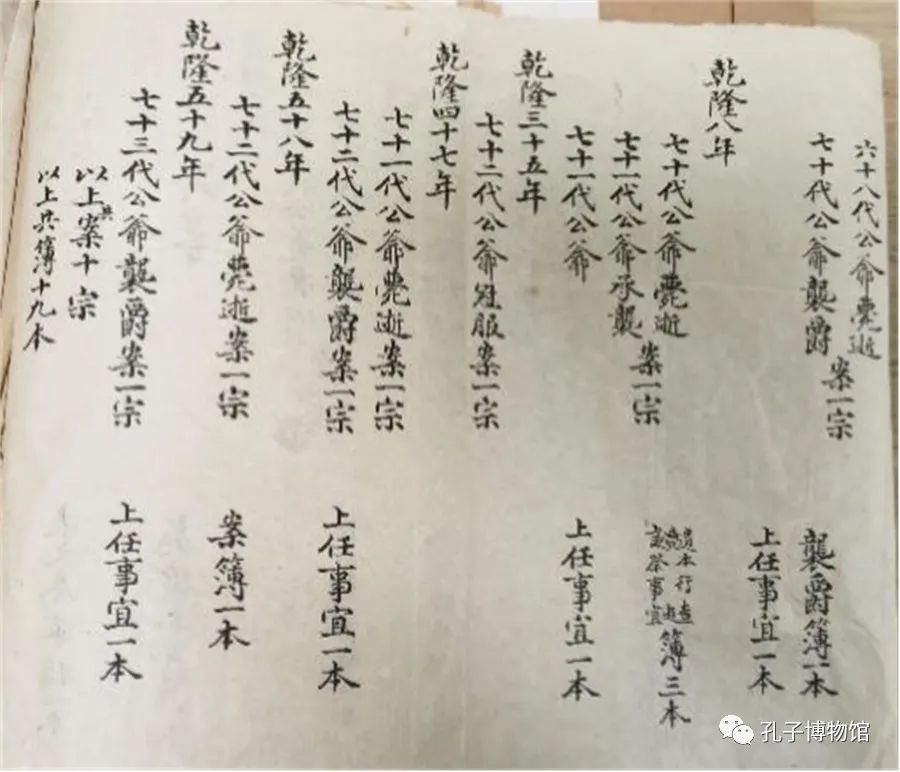 六十八代公爺薨逝
七十代公爺襲爵
案一宗
襲爵簿一本
上任事宜一本
乾隆八年
七十代公爺薨逝
七十一代公爺承襲
案一宗
遺本行查
薨逝
祭事宜
簿三本
七十一代公爺
上任事宜一本
乾隆三十五年
七十二代公爺冠服案一宗
乾隆四十七年
七十一代公爺薨逝案一宗
七十二代公爺襲爵案一宗
上任事宜一本
乾隆五十八年
七十二代公爺薨逝案一宗
案簿一本
乾隆五十九年
七十三代公爺襲爵案一宗
上任事宜一本
以上共案十宗
以上共簿十九本
孔子博物馆